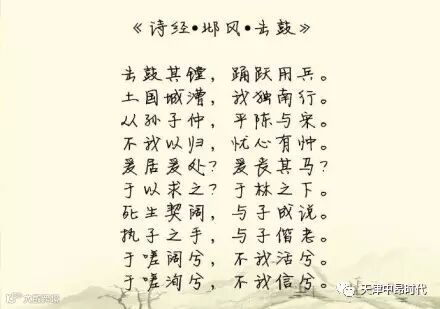 《诗经•邶风•击鼓》
击鼓其镗，踊跃用兵。
土国城漕，我独南行。
从孙子仲，平陈与宋。
不我以归，忧心有忡。
爰居爰处？爰丧其马？
于以求之？于林之下。
死生契阔，与子成说。
执子之手，与子偕老。
于嗟阔兮，不我活兮。
于嗟洵兮，不我信兮。
天津中昂时代